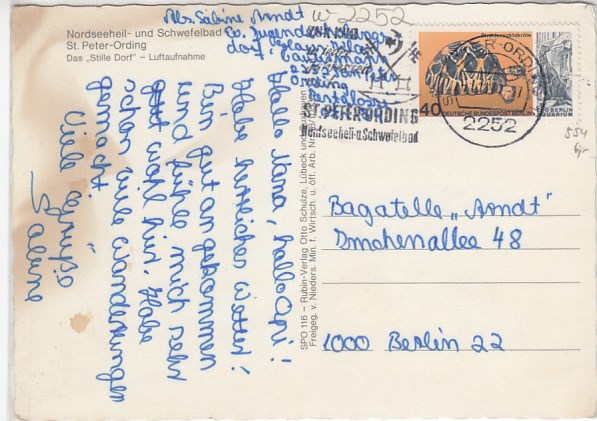 Nordseeheil- und Schwefelbad
St. Peter-Ording
Das „Stille Dorf" – Luftaufnahme
Abs. Sabine Arndt
Ev. Jugenderholungs-
dorf
2252
Ording
w 2252
ST. PETER-ORDING
Nordseeheil-u.Schwefelbad
ST. PETER-ORDING
2252
Strahlenschildkröte
40
DEUTSCHE BUNDESPOST BERLIN
ZOO BERLIN
AQUARIUM
554
Hallo Nana, hallo Opi!
Habe herrliches Wetter!
Bin gut angekommen
und fühle mich sehr
wohl hier. Habe
schon viele Wanderungen
gemacht.
Viele Grüße
Sabine
SPO 116 – Rubin-Verlag Otto Schulze, Lübeck und
Freigeg. v. Nieders. Min. f. Wirtsch. u. öff. Arb. Nr.
Bagatelle „Arndt"
Imchenallee 48
1000 Berlin 22